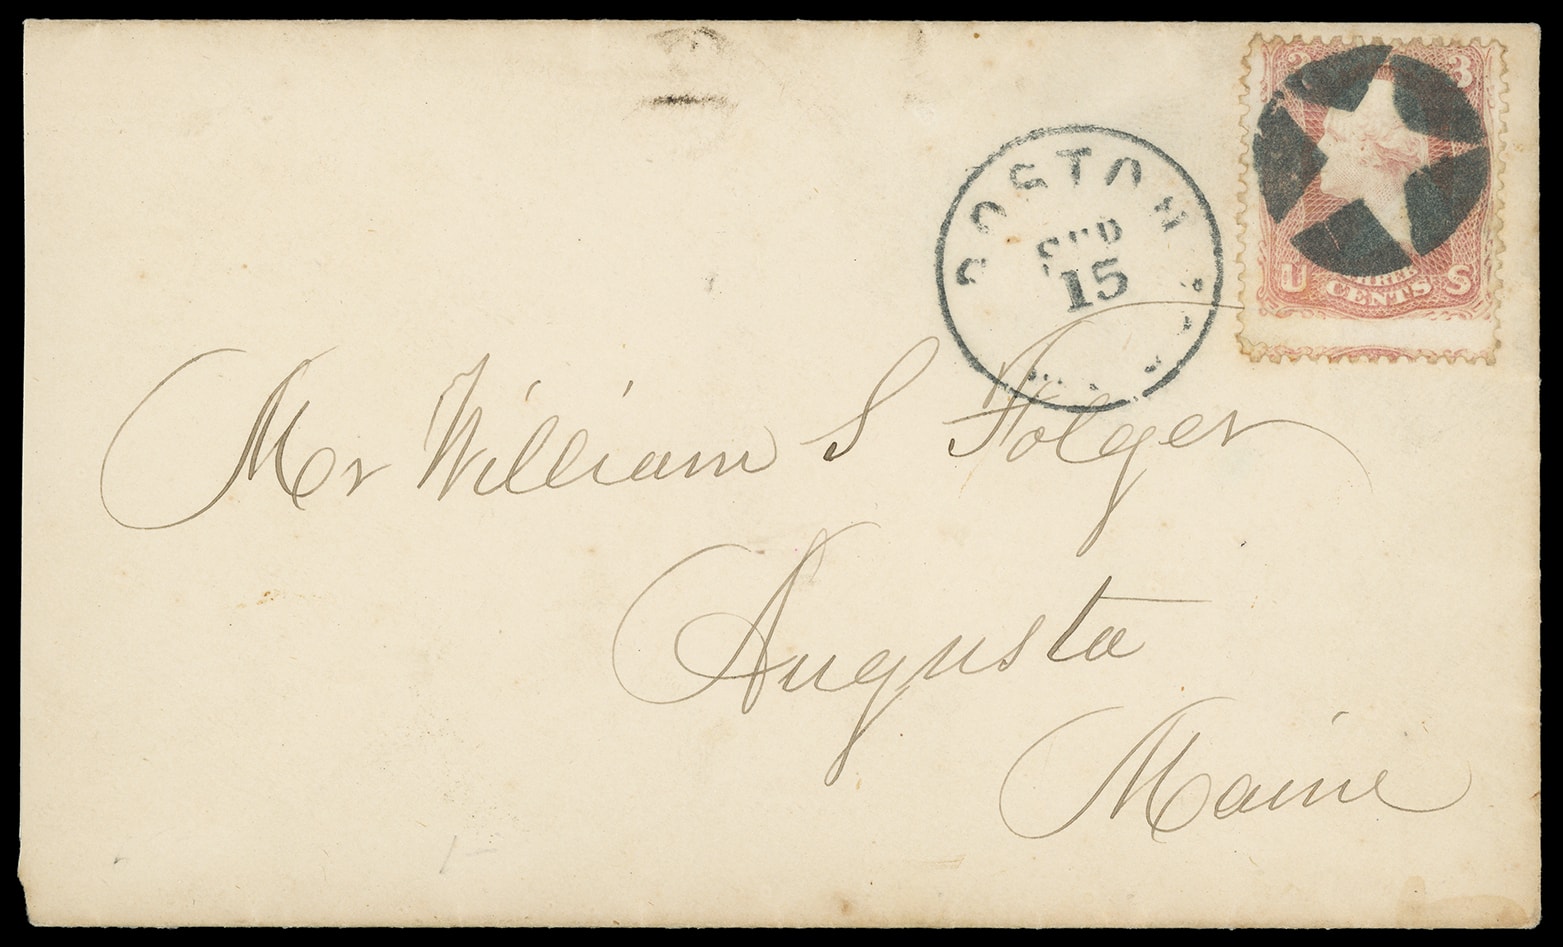 3 3
BOSTON
15
U THREE S
CENTS
Mr William S Folger
Augusta
Maine